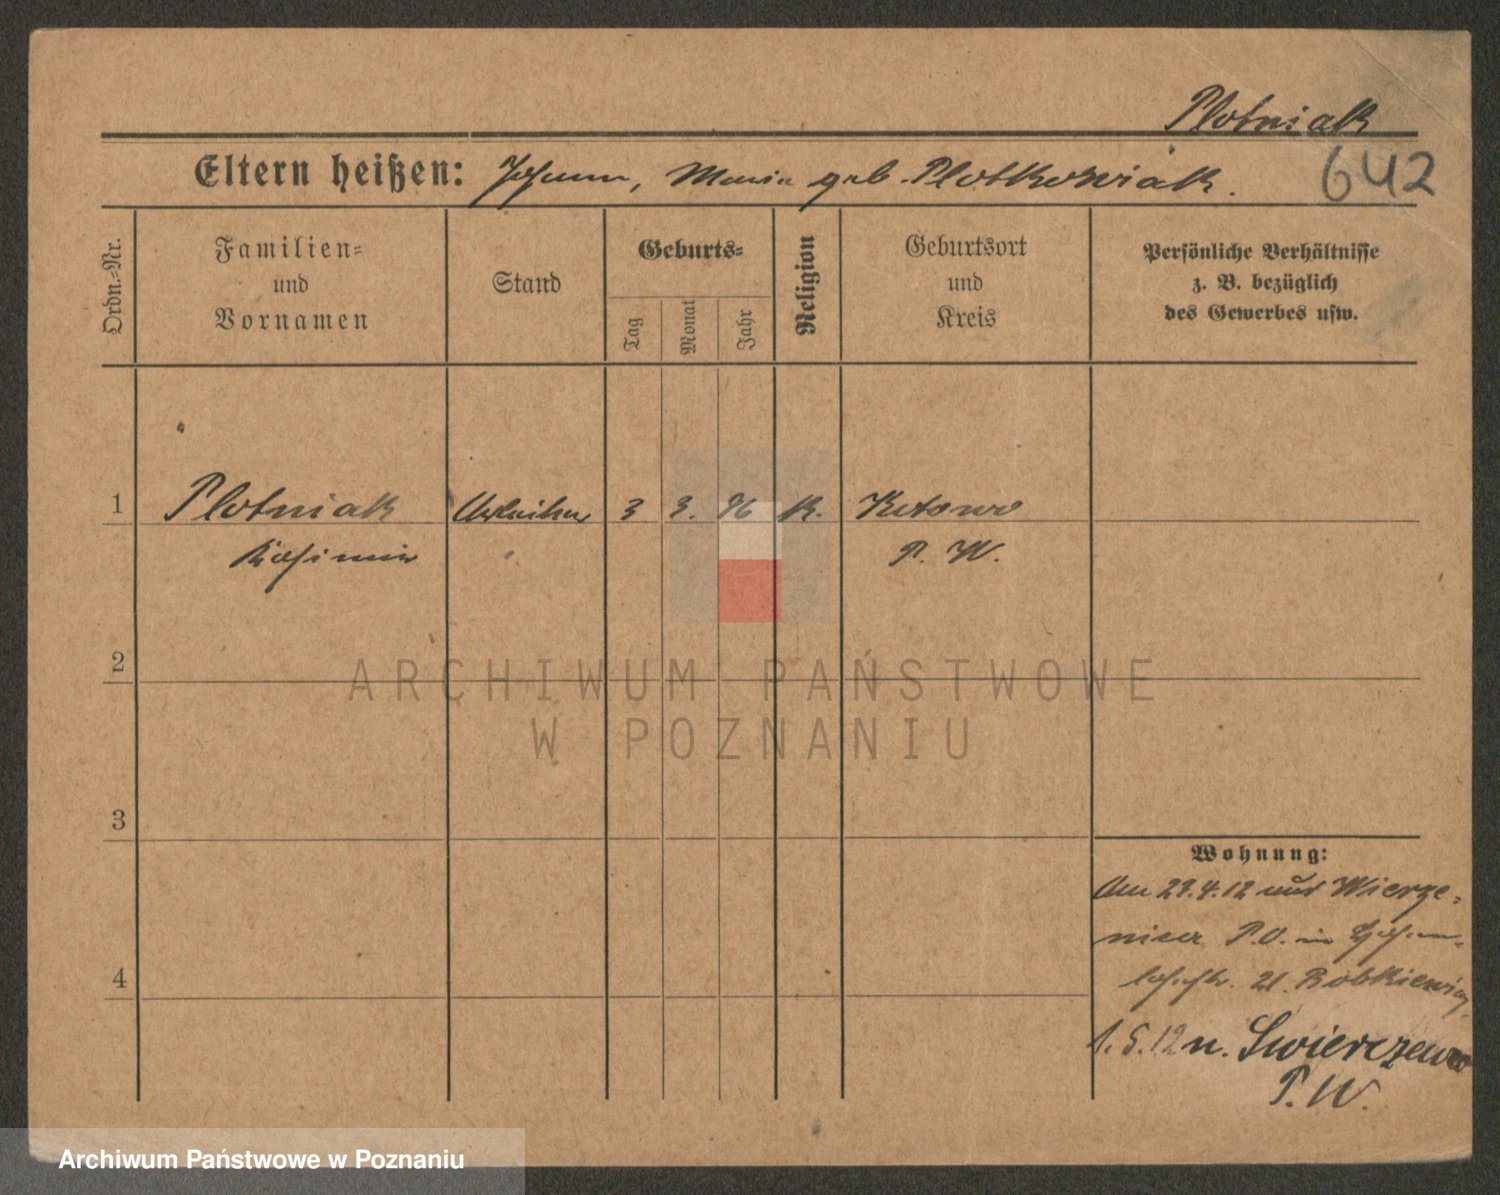 Plotniak
642
Eltern heißen: Johann, Maria geb. Plotkowiak.
Ordn.=Nr.
Familien=
und
Vornamen
Stand
Geburts=
Tag
Monat
Jahr
Religion
Geburtsort
und
Kreis
Persönliche Verhältnisse
z. B. bezüglich
des Gewerbes usw.
1 Plotniak Arbeiter 3 3. 96 K. Kotowo
Kasimir P. W.
2
3
4
Wohnung:
Am 23.4.12 aus Wierze=
nica P.O. in
21. Bobkiewicz
1.5.12 n. Swierczewo
P. W.
ARCHIWUM PAŃSTWOWE
W POZNANIU
Archiwum Państwowe w Poznaniu